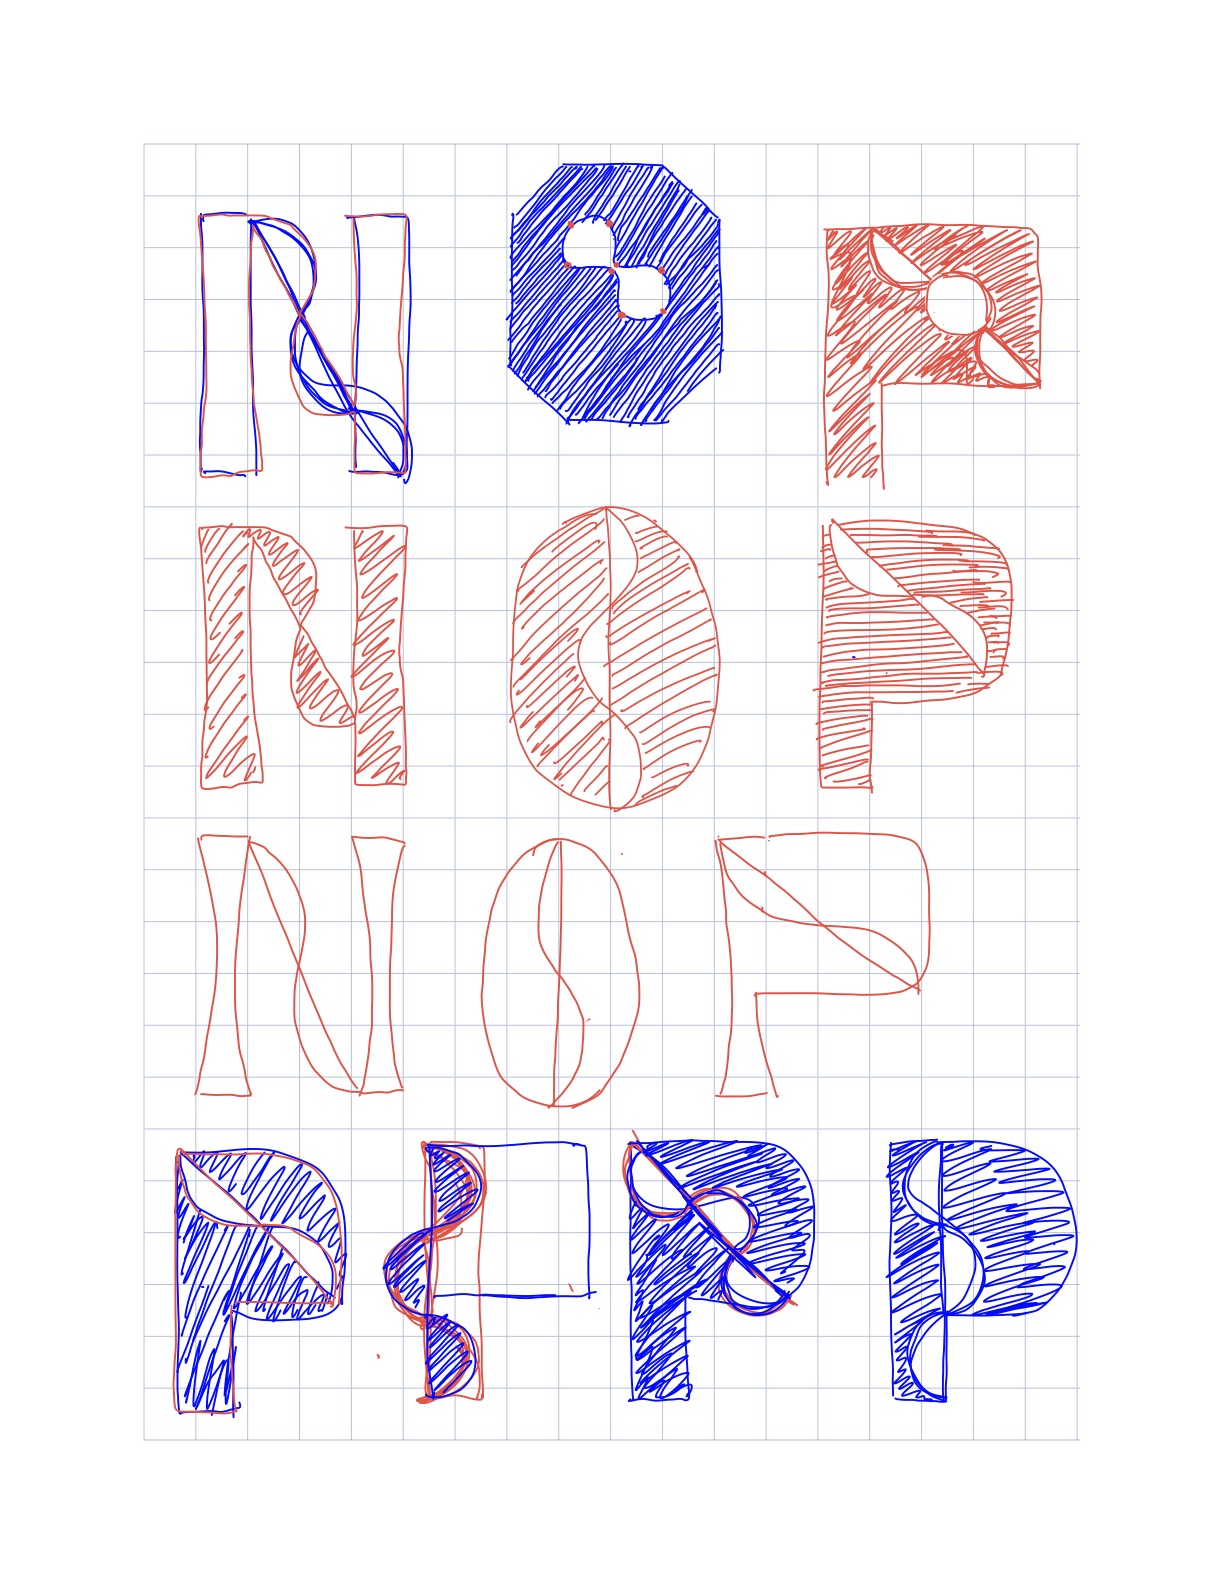 N O P
N O P
N O P
P P P P